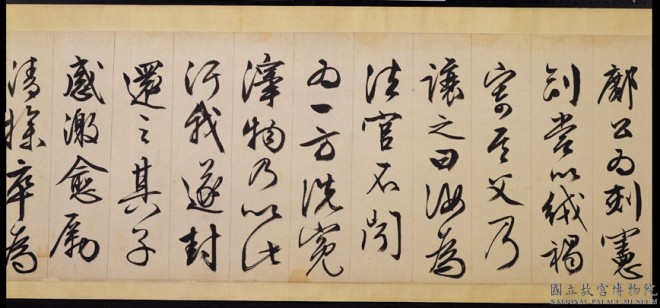 鄺公為憲
副嘗以絨褐
寄其父乃
讓之曰汝為
法官不聞
為一方洗冤
澤物乃以此
污我遂封
還之其子
感激愈勵
清操卒為
國立故宮博物院
NATIONAL PALACE MUSEUM